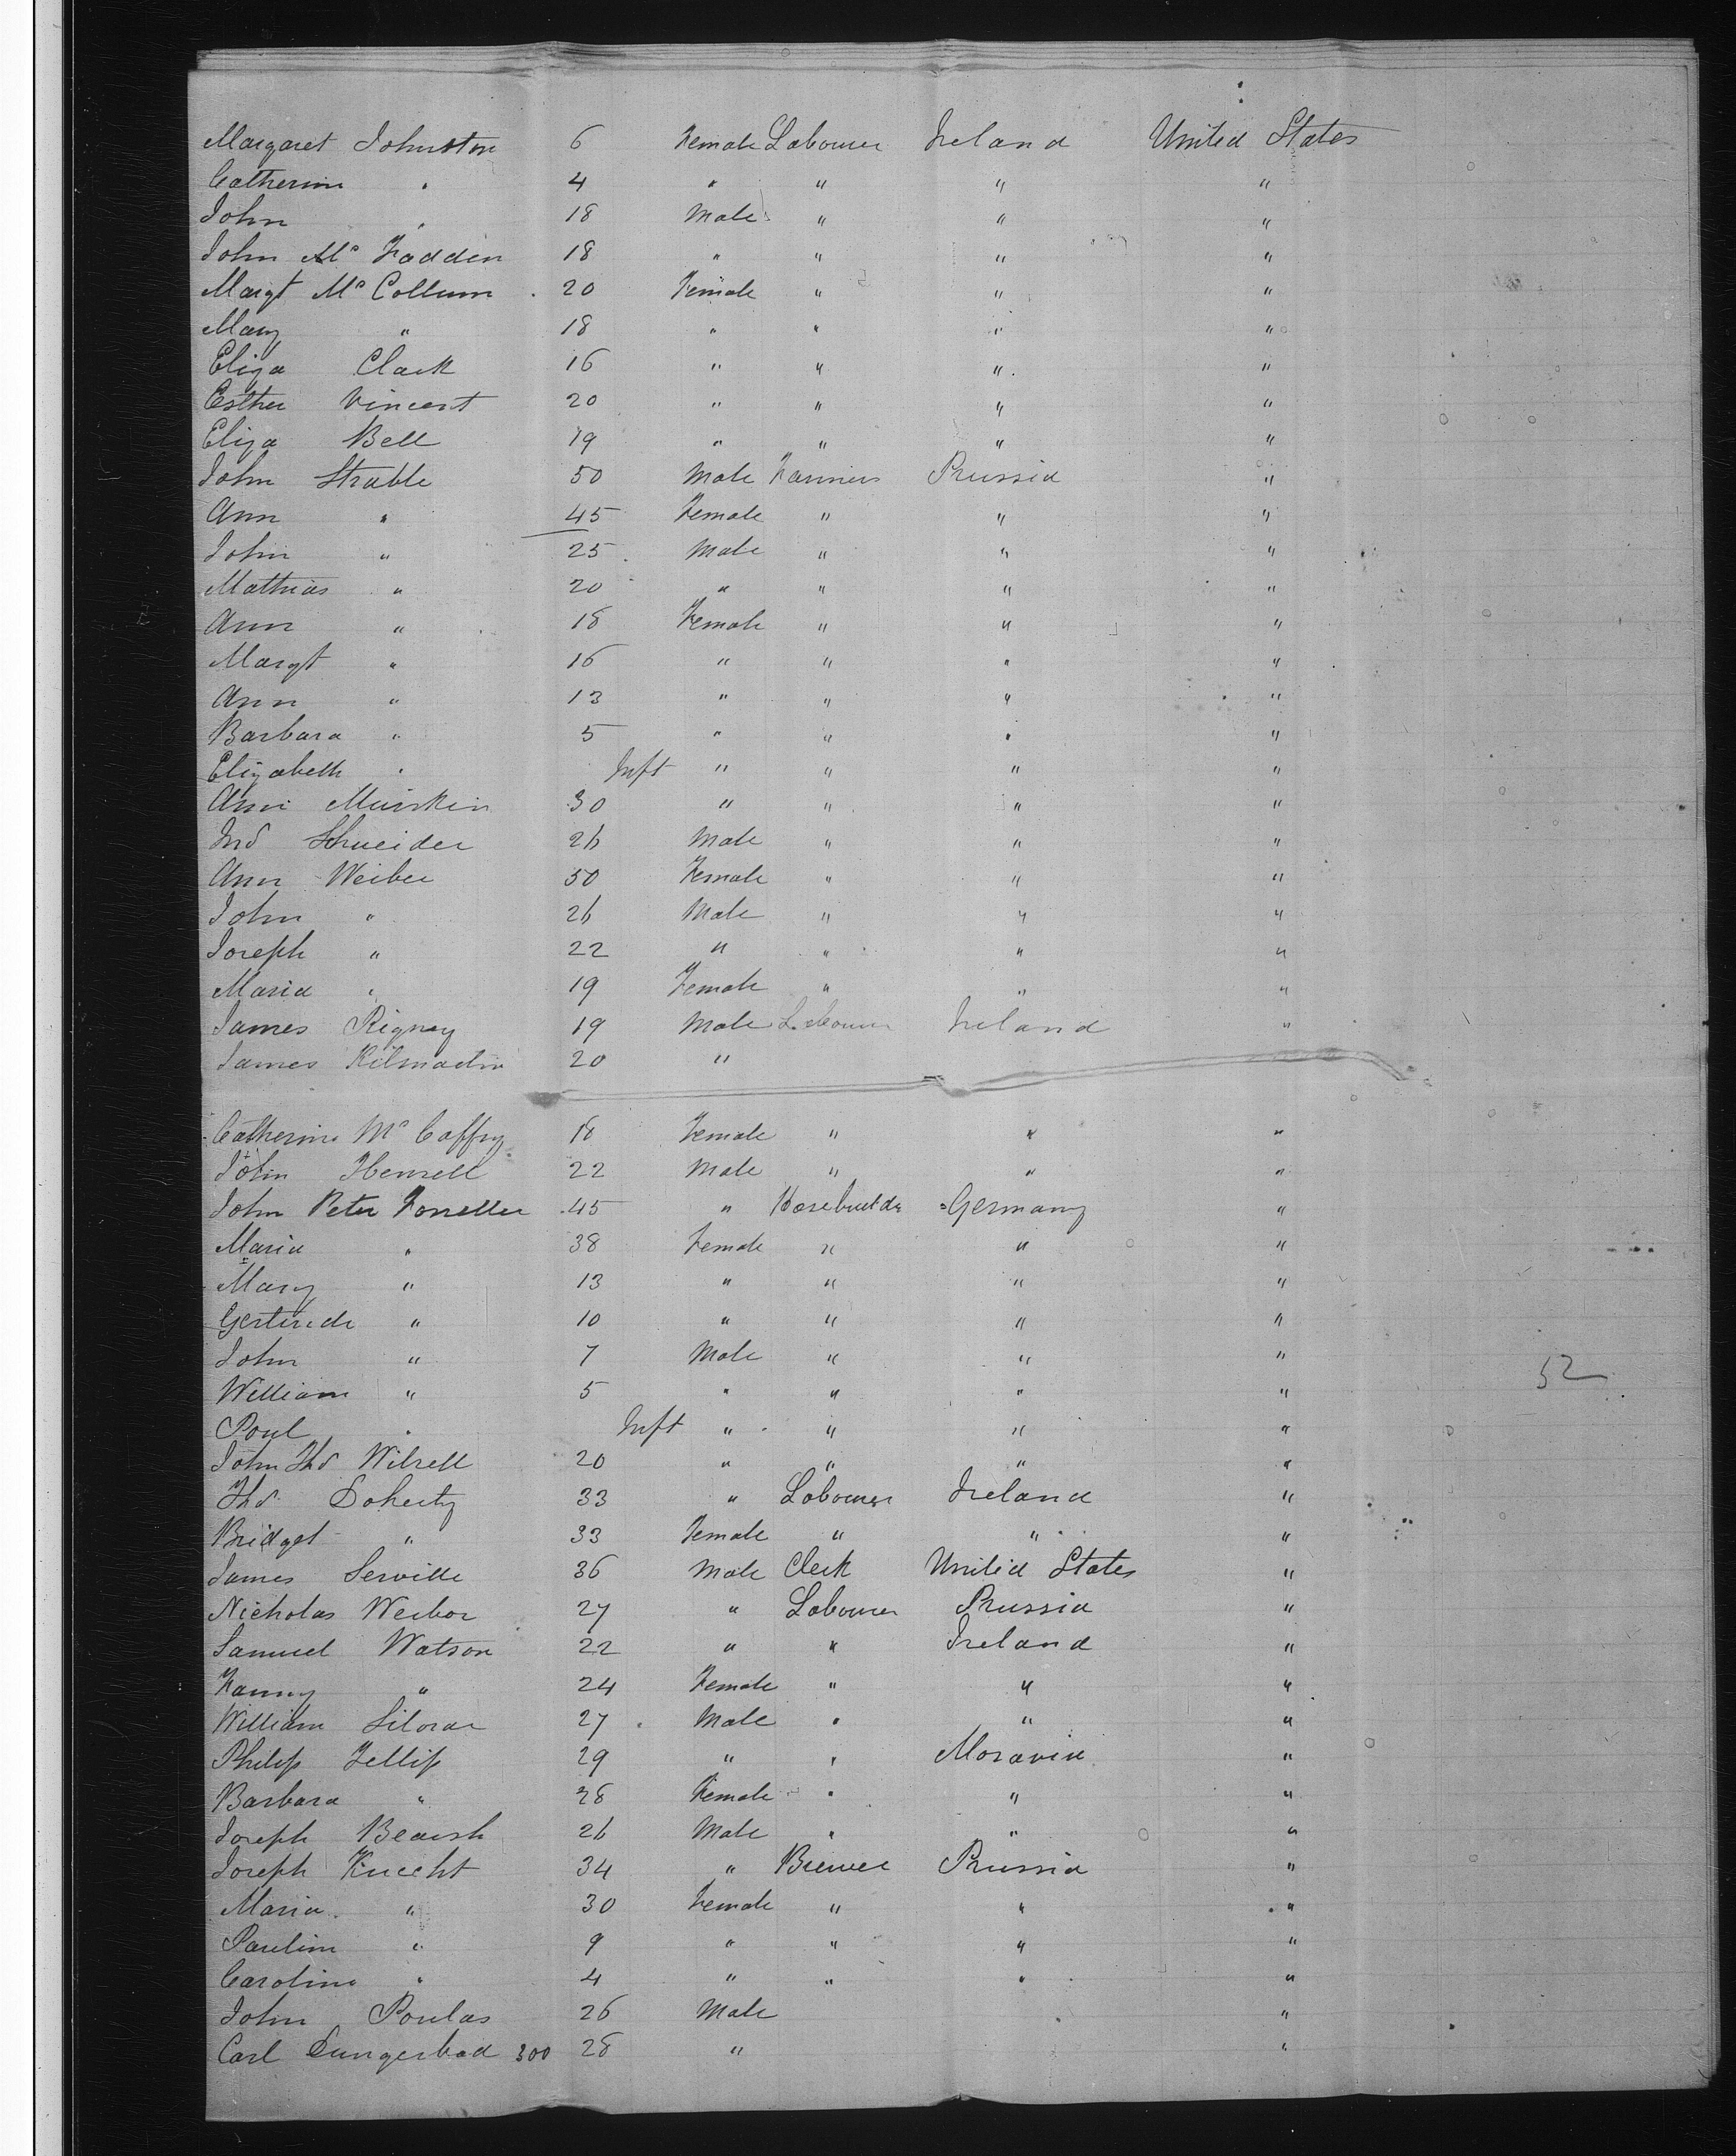 Margaret Johnston 6 Female Labourer Ireland United States
Catherine " 4 " " " "
John " 18 Male " " "
John Mc Fadden 18 " " " "
Margt Mc Collum 20 Female " " "
Mary " 18 " " " "
Eliza Clark 16 " " " "
Esther Vincent 20 " " " "
Eliza Bell 19 " " " "
John Strable 50 Male Farmers Prussia "
Ann " 45 Female " " "
John " 25 Male " " "
Mathias " 20 " " " "
Ann " 18 Female " " "
Margt " 16 " " " "
Ann " 13 " " " "
Barbara " 5 " " " "
Elizabeth " Inft " " " "
Ann 30 " " " "
Schneider 26 Male " " "
Ann Weiber 50 Female " " "
John " 26 Male " " "
Joseph " 22 " " " "
Maria " 19 Female " " "
James Rigney 19 Male Labourer Ireland "
James 20 "
Catherine Mc Caffry 18 Female " " "
John Hensell 22 Male " " "
John Peter 45 " Germany "
Maria " 38 Female " " "
Mary " 13 " " " "
Gertrude " 10 " " " "
John " 7 Male " " "
William " 5 " " " "
Poul " Inft " " " "
52
John Wilsell 20 " " " "
Thos Doherty 33 " Labourer Ireland "
Bridget " 33 Female " " "
James Serville 36 Male Clerk United States "
Nicholas Weibor 27 " Labourer Prussia "
Samuel Watson 22 " " Ireland "
Fanny " 24 Female " " "
William 27 Male " " "
Philip 29 " " Moravia "
Barbara " 28 Female " " "
Joseph 26 Male " " "
Joseph Knecht 34 " Brewer Prussia "
Maria " 30 Female " " "
Paulina " 9 " " " "
Caroline " 4 " " " "
John Poulas 26 Male "
Carl Dungerbad 300 28 " "